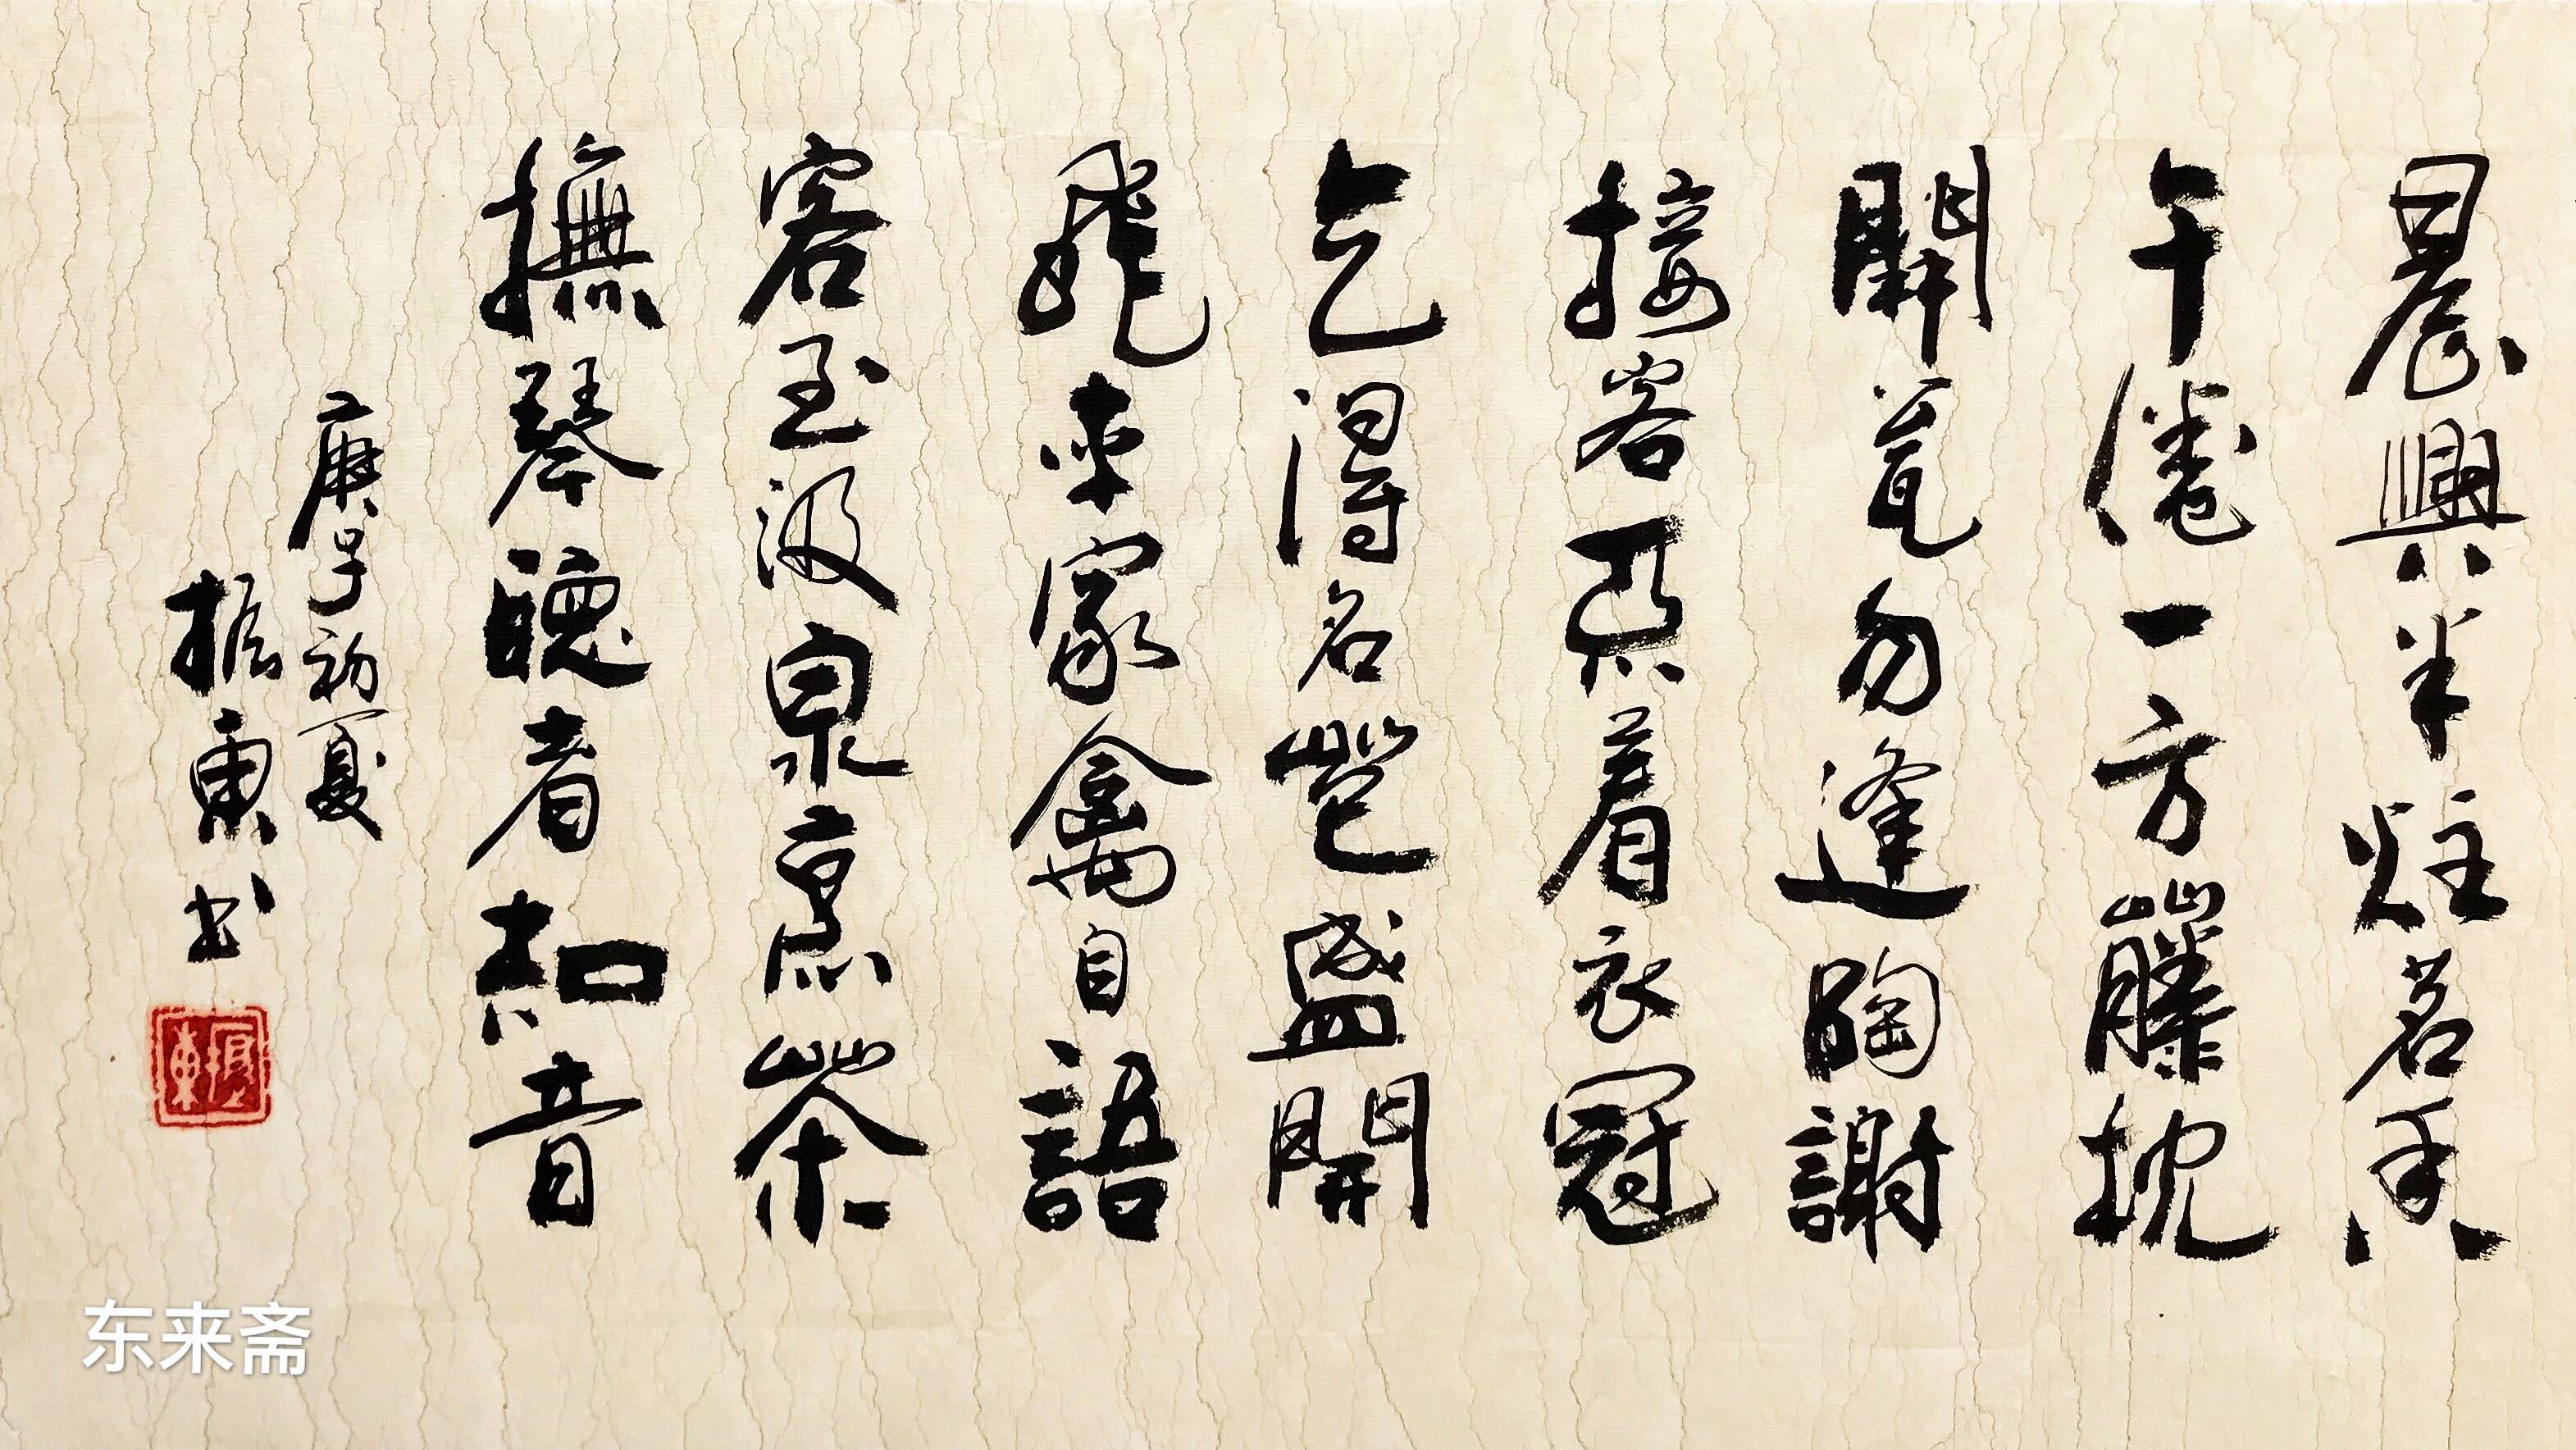 晨興半炷茗香
午倦一方藤枕
開甕勿逢陶謝
接客不着衣冠
乞得名花盛開
飛來家禽自語
客至汲泉烹茶
撫琴聽者知音
庚子初夏
振東书
振東
东来斋